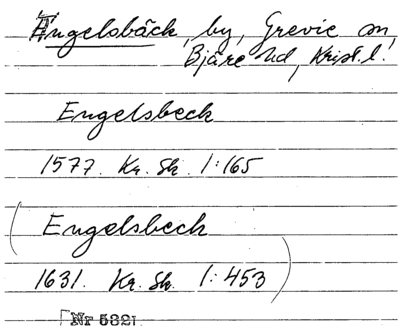 Ängelsbäck, by, Grevie sn,
Bjäre hd, Krist. l.
Engelsbeck
1577. Kr. Sk. 1:165
(Engelsbeck
1631. Kr. Sk. 1:453)
Nr 5321